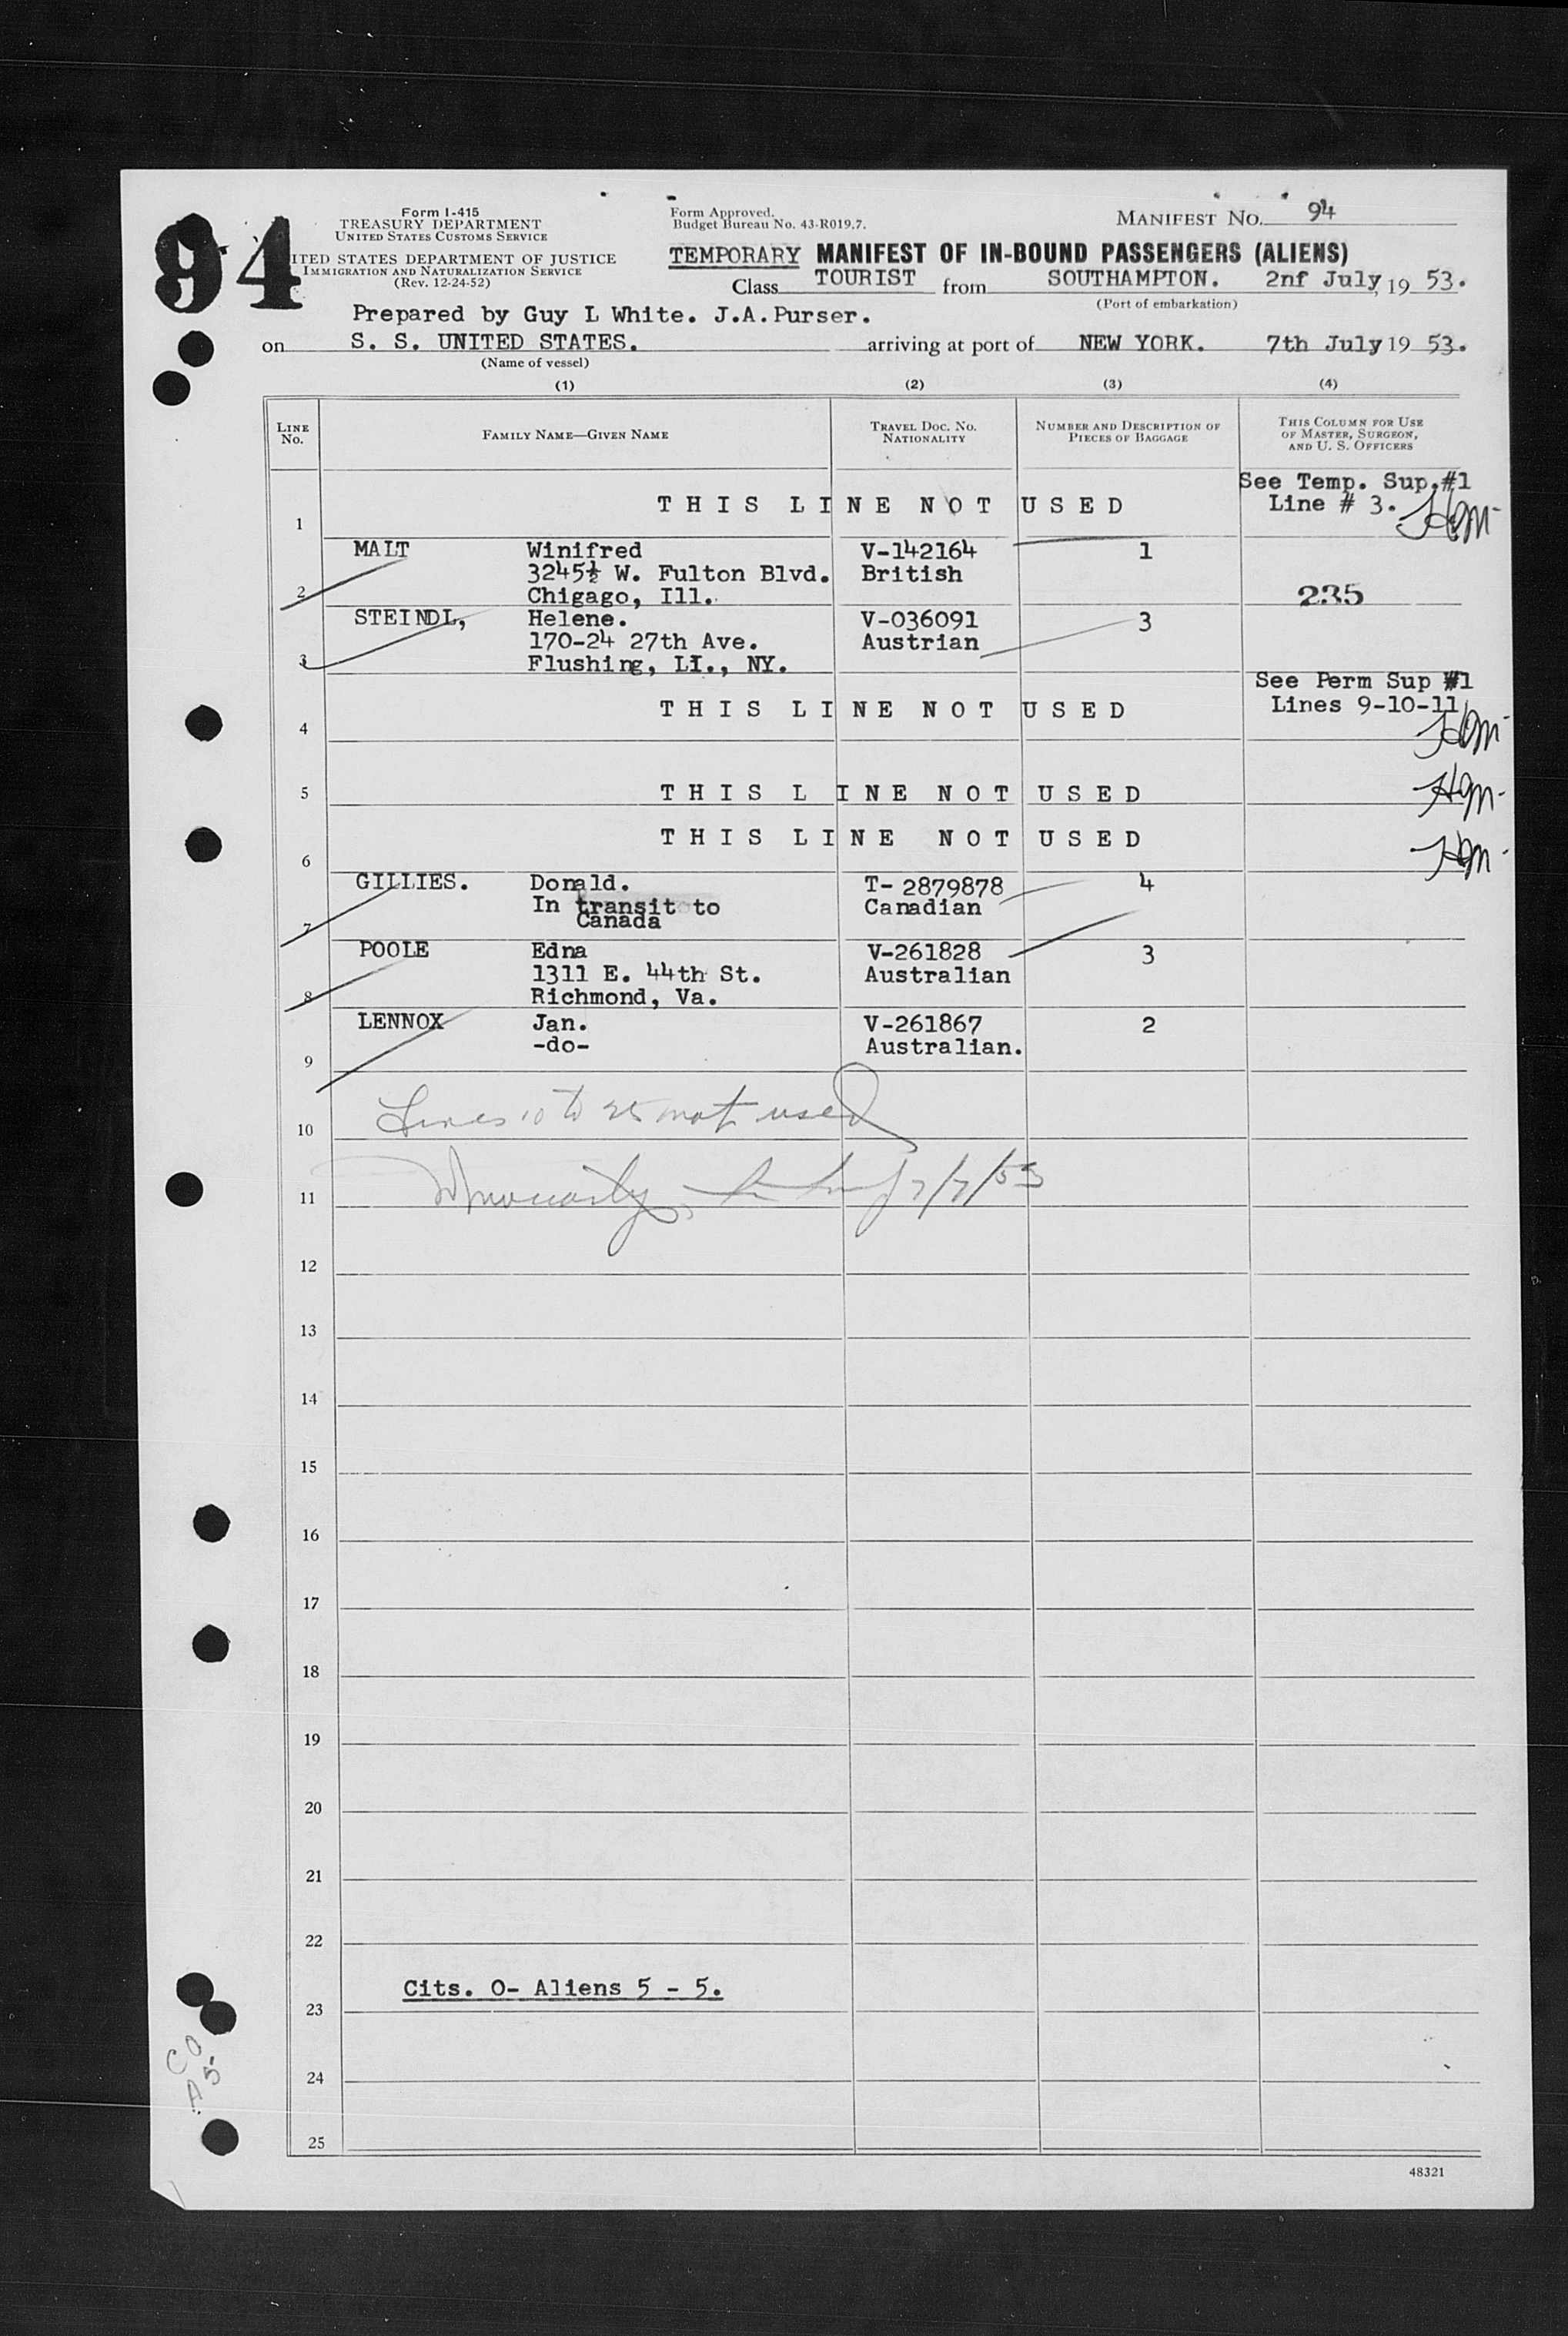 94
Form I-415
TREASURY DEPARTMENT
UNITED STATES CUSTOMS SERVICE
ITED STATES DEPARTMENT OF JUSTICE
IMMIGRATION AND NATURALIZATION SERVICE
(Rev. 12-24-52)
Form Approved.
Budget Bureau No. 43-R019.7.
MANIFEST NO. 94
TEMPORARY MANIFEST OF IN-BOUND PASSENGERS (ALIENS)
Class TOURIST from SOUTHAMPTON. 2nf July, 19 53.
(Port of embarkation)
Prepared by Guy L White. J.A.Purser.
on S. S. UNITED STATES. arriving at port of NEW YORK. 7th July 19 53.
(Name of vessel)
(1) (2) (3) (4)
LINE No. FAMILY NAME—GIVEN NAME TRAVEL DOC. NO. NATIONALITY NUMBER AND DESCRIPTION OF PIECES OF BAGGAGE THIS COLUMN FOR USE OF MASTER, SURGEON, AND U. S. OFFICERS
See Temp. Sup.#1
1 THIS LINE NOT USED Line # 3.
MALT Winifred V-142164 1
3245½ W. Fulton Blvd. British
2 Chigago, Ill. 235
STEINDL, Helene. V-036091 3
170-24 27th Ave. Austrian
3 Flushing, LI., NY.
See Perm Sup #1
4 THIS LINE NOT USED Lines 9-10-11
5 THIS LINE NOT USED
6 THIS LINE NOT USED
GILLIES. Donald. T- 2879878 4
In transit to Canadian
7 Canada
POOLE Edna V-261828 3
1311 E. 44th St. Australian
8 Richmond, Va.
LENNOX Jan. V-261867 2
9 -do- Australian.
10 Lines 10 to 25 not used
11 7/7/53
12
13
14
15
16
17
18
19
20
21
22
Cits. O- Aliens 5 - 5.
23
24
25
C O
A 5
48321